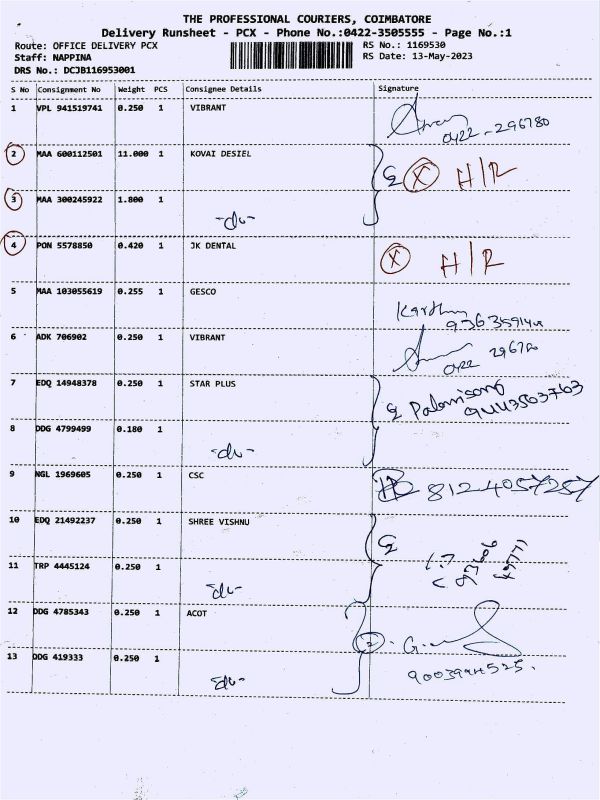 THE PROFESSIONAL COURIERS, COIMBATORE
Delivery Runsheet - PCX - Phone No.:0422-3505555 - Page No.:1
Route: OFFICE DELIVERY PCX RS No.: 1169530
Staff: NAPPINA RS Date: 13-May-2023
DRS No.: DCJB116953001
S No Consignment No Weight PCS Consignee Details Signature
1 VPL 941519741 0.250 1 VIBRANT
0422-296780
2 MAA 600112501 11.000 1 KOVAI DESIEL X H/R
3 MAA 300245922 1.800 1
-do-
4 PON 5578850 0.420 1 JK DENTAL X H/R
5 MAA 103055619 0.255 1 GESCO
6 ADK 706902 0.250 1 VIBRANT
0422
7 EDQ 14948378 0.250 1 STAR PLUS
8 DDG 4799499 0.180 1
-do-
9 NGL 1969605 0.250 1 CSC 8124057257
10 EDQ 21492237 0.250 1 SHREE VISHNU
11 TRP 4445124 0.250 1
-do-
12 DDG 4785343 0.250 1 ACOT
13 DDG 419333 0.250 1
-do-